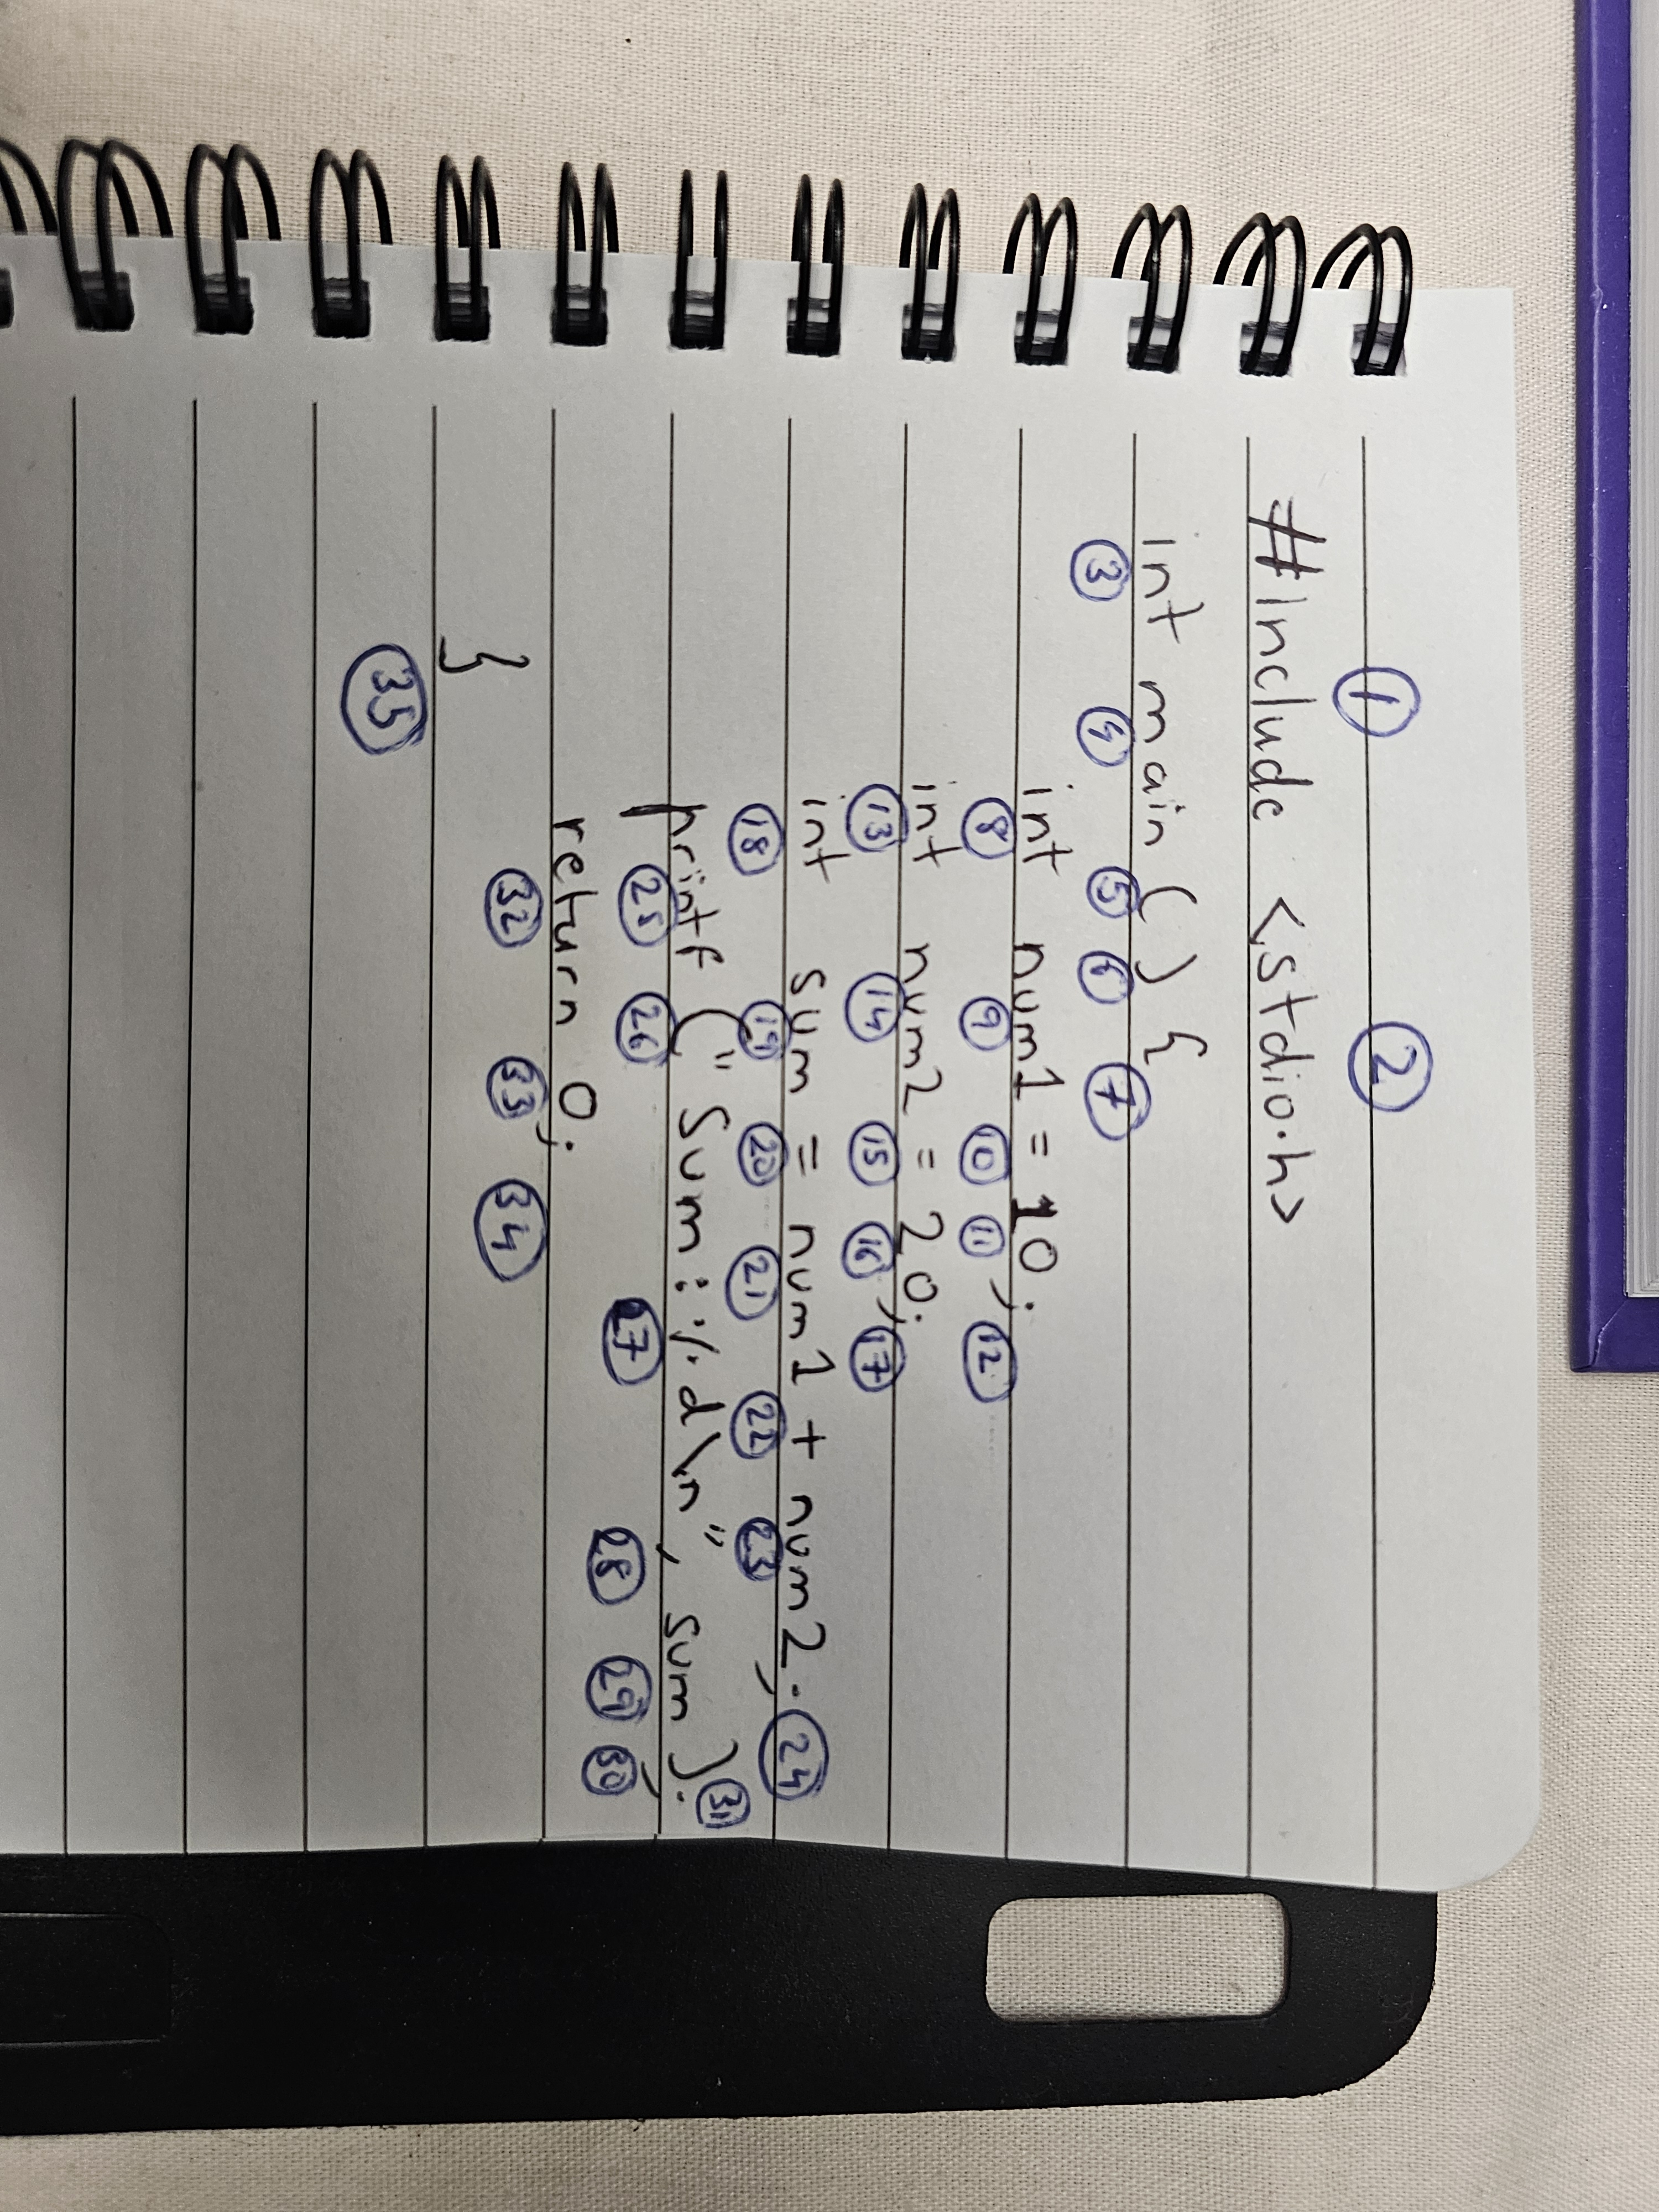 ① ②
#include <stdio.h>
int main ( ) {
③ ④ ⑤ ⑥ ⑦
int num1 = 10;
⑧ ⑨ ⑩ ⑪ ⑫
int num2 = 20;
⑬ ⑭ ⑮ ⑯ ⑰
int sum = num1 + num2; ㉔
⑱ ⑲ ⑳ ㉑ ㉒ ㉓
printf ("Sum : %d\n", sum); ㉛
㉕ ㉖ ㉗ ㉘ ㉙ ㉚
return 0;
㉜ ㉝ ㉞
}
㉟